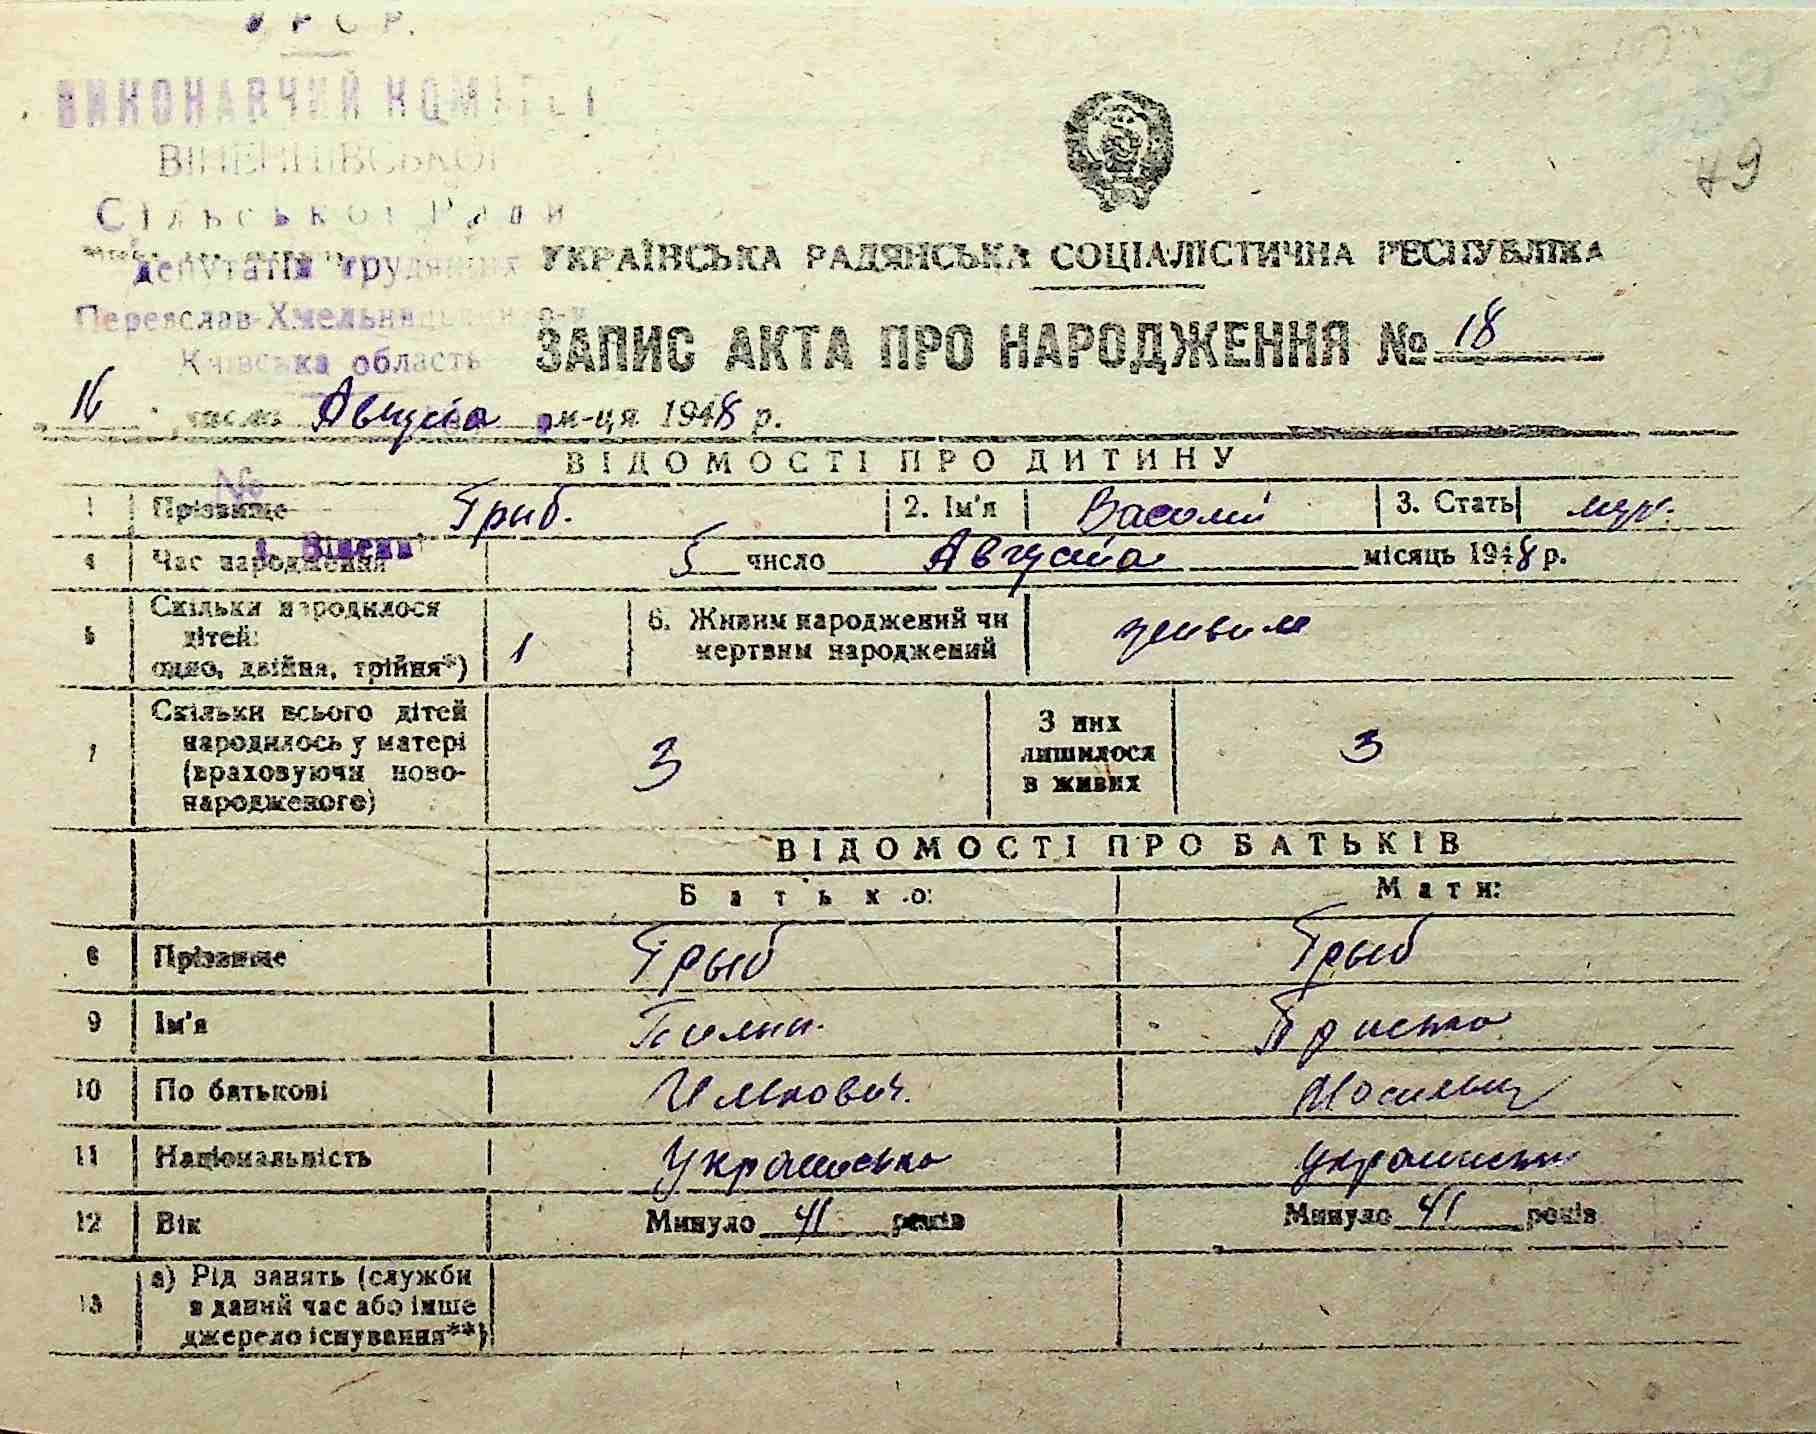 У Р С Р.
ВИКОНАВЧИЙ КОМІТЕТ
Сільської Ради
депутатів трудящих
Переяслав-Хмельницького р-н
Київська область
49
УКРАЇНСЬКА РАДЯНСЬКА СОЦІАЛІСТИЧНА РЕСПУБЛІКА
ЗАПИС АКТА ПРО НАРОДЖЕННЯ № 18
16 число Августа м-ця 1948 р.
№
ВІДОМОСТІ ПРО ДИТИНУ
1 Прізвище Грыб. 2. Ім'я Василий 3. Стать муж.
4 Час народження 5 число Августа місяць 1948 р.
5 Скільки народилося дітей: одно, двійня, трійня*) 1 6. Живим народжений чи мертвим народжений живим
7 Скільки всього дітей народилось у матері (враховуючи новонародженого) 3 З них лишилося в живих 3
ВІДОМОСТІ ПРО БАТЬКІВ
Батько: Мати:
8 Прізвище Грыб Грыб
9 Ім'я Пилип. Приська
10 По батькові Илькович.
11 Національність Украинська украинська
12 Вік Минуло 41 років Минуло 41 років
13 а) Рід занять (служби в даний час або інше джерело існування**)